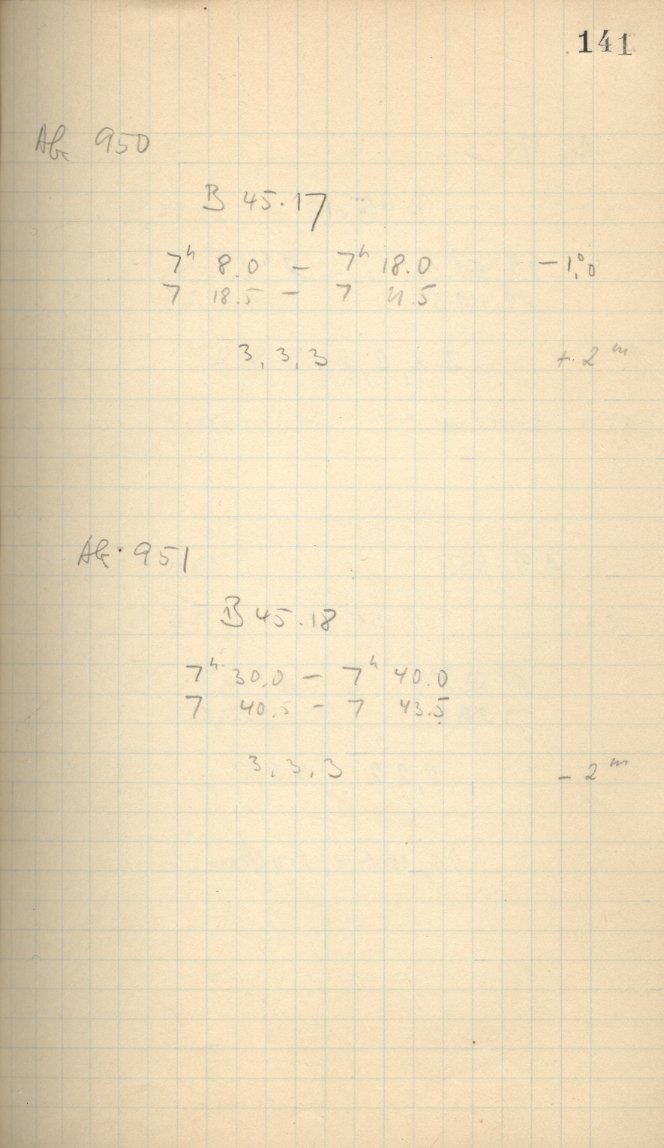 141
Ab. 950
B 45.17
7ʰ 8.0 – 7ʰ 18.0 –1°,0
7 18.5 – 7 21.5
3, 3, 3 + 2ᵐ
Ab. 951
B 45.18
7ʰ 30.0 – 7ʰ 40.0
7 40.5 – 7 43.5
3, 3, 3 – 2ᵐ